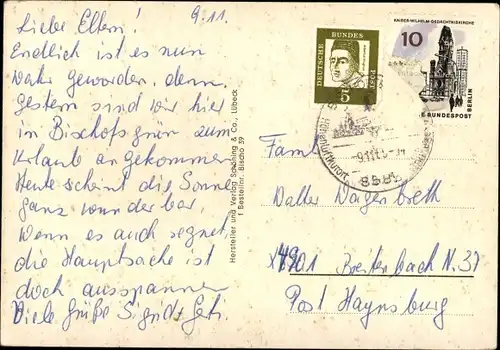 9.11.
Liebe Eltern!
Endlich ist es nun
wahr geworden, denn
gestern sind wir hier
in Bischofsgrün zum
Urlaub angekommen
Heute scheint die Sonne
ganz wunderbar,
Wenn es auch regnet
die Hauptsache ist
doch ausspannen
Viele Grüße Sigrid
Hersteller und Verlag Schöning & Co., Lübeck
1 Bestellnr. Bischo 39
DEUTSCHE BUNDES POST
5
KAISER-WILHELM-GEDÄCHTNISKIRCHE
10
BERLIN
DEUTSCHE BUNDESPOST
8581
Fam
Walter Wagenbreth
4901 Breitenbach N. 37
Post Haynsburg